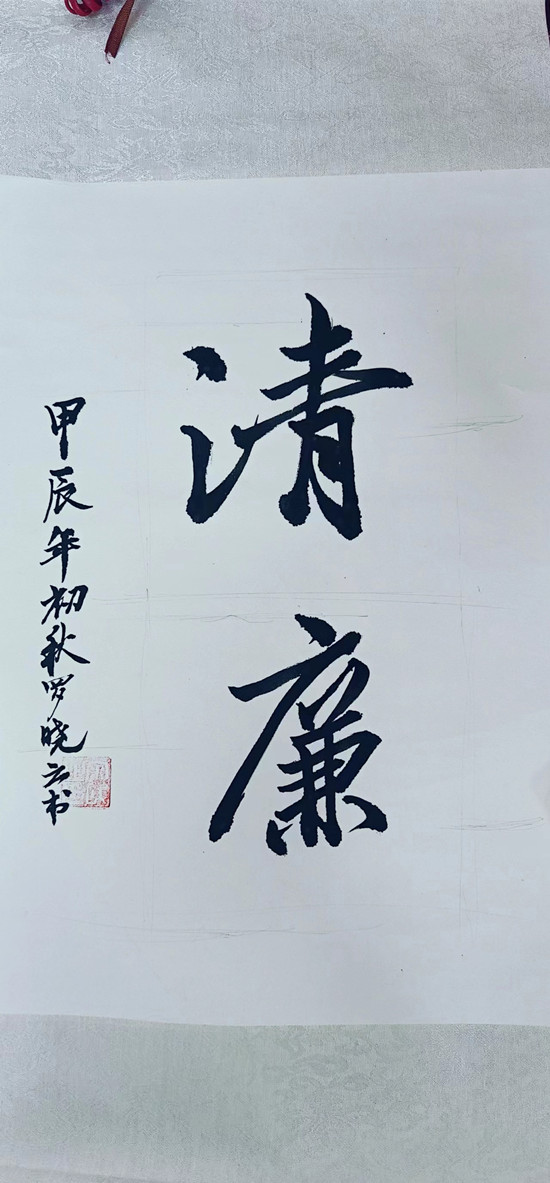 清廉
甲辰年初秋罗晓云书